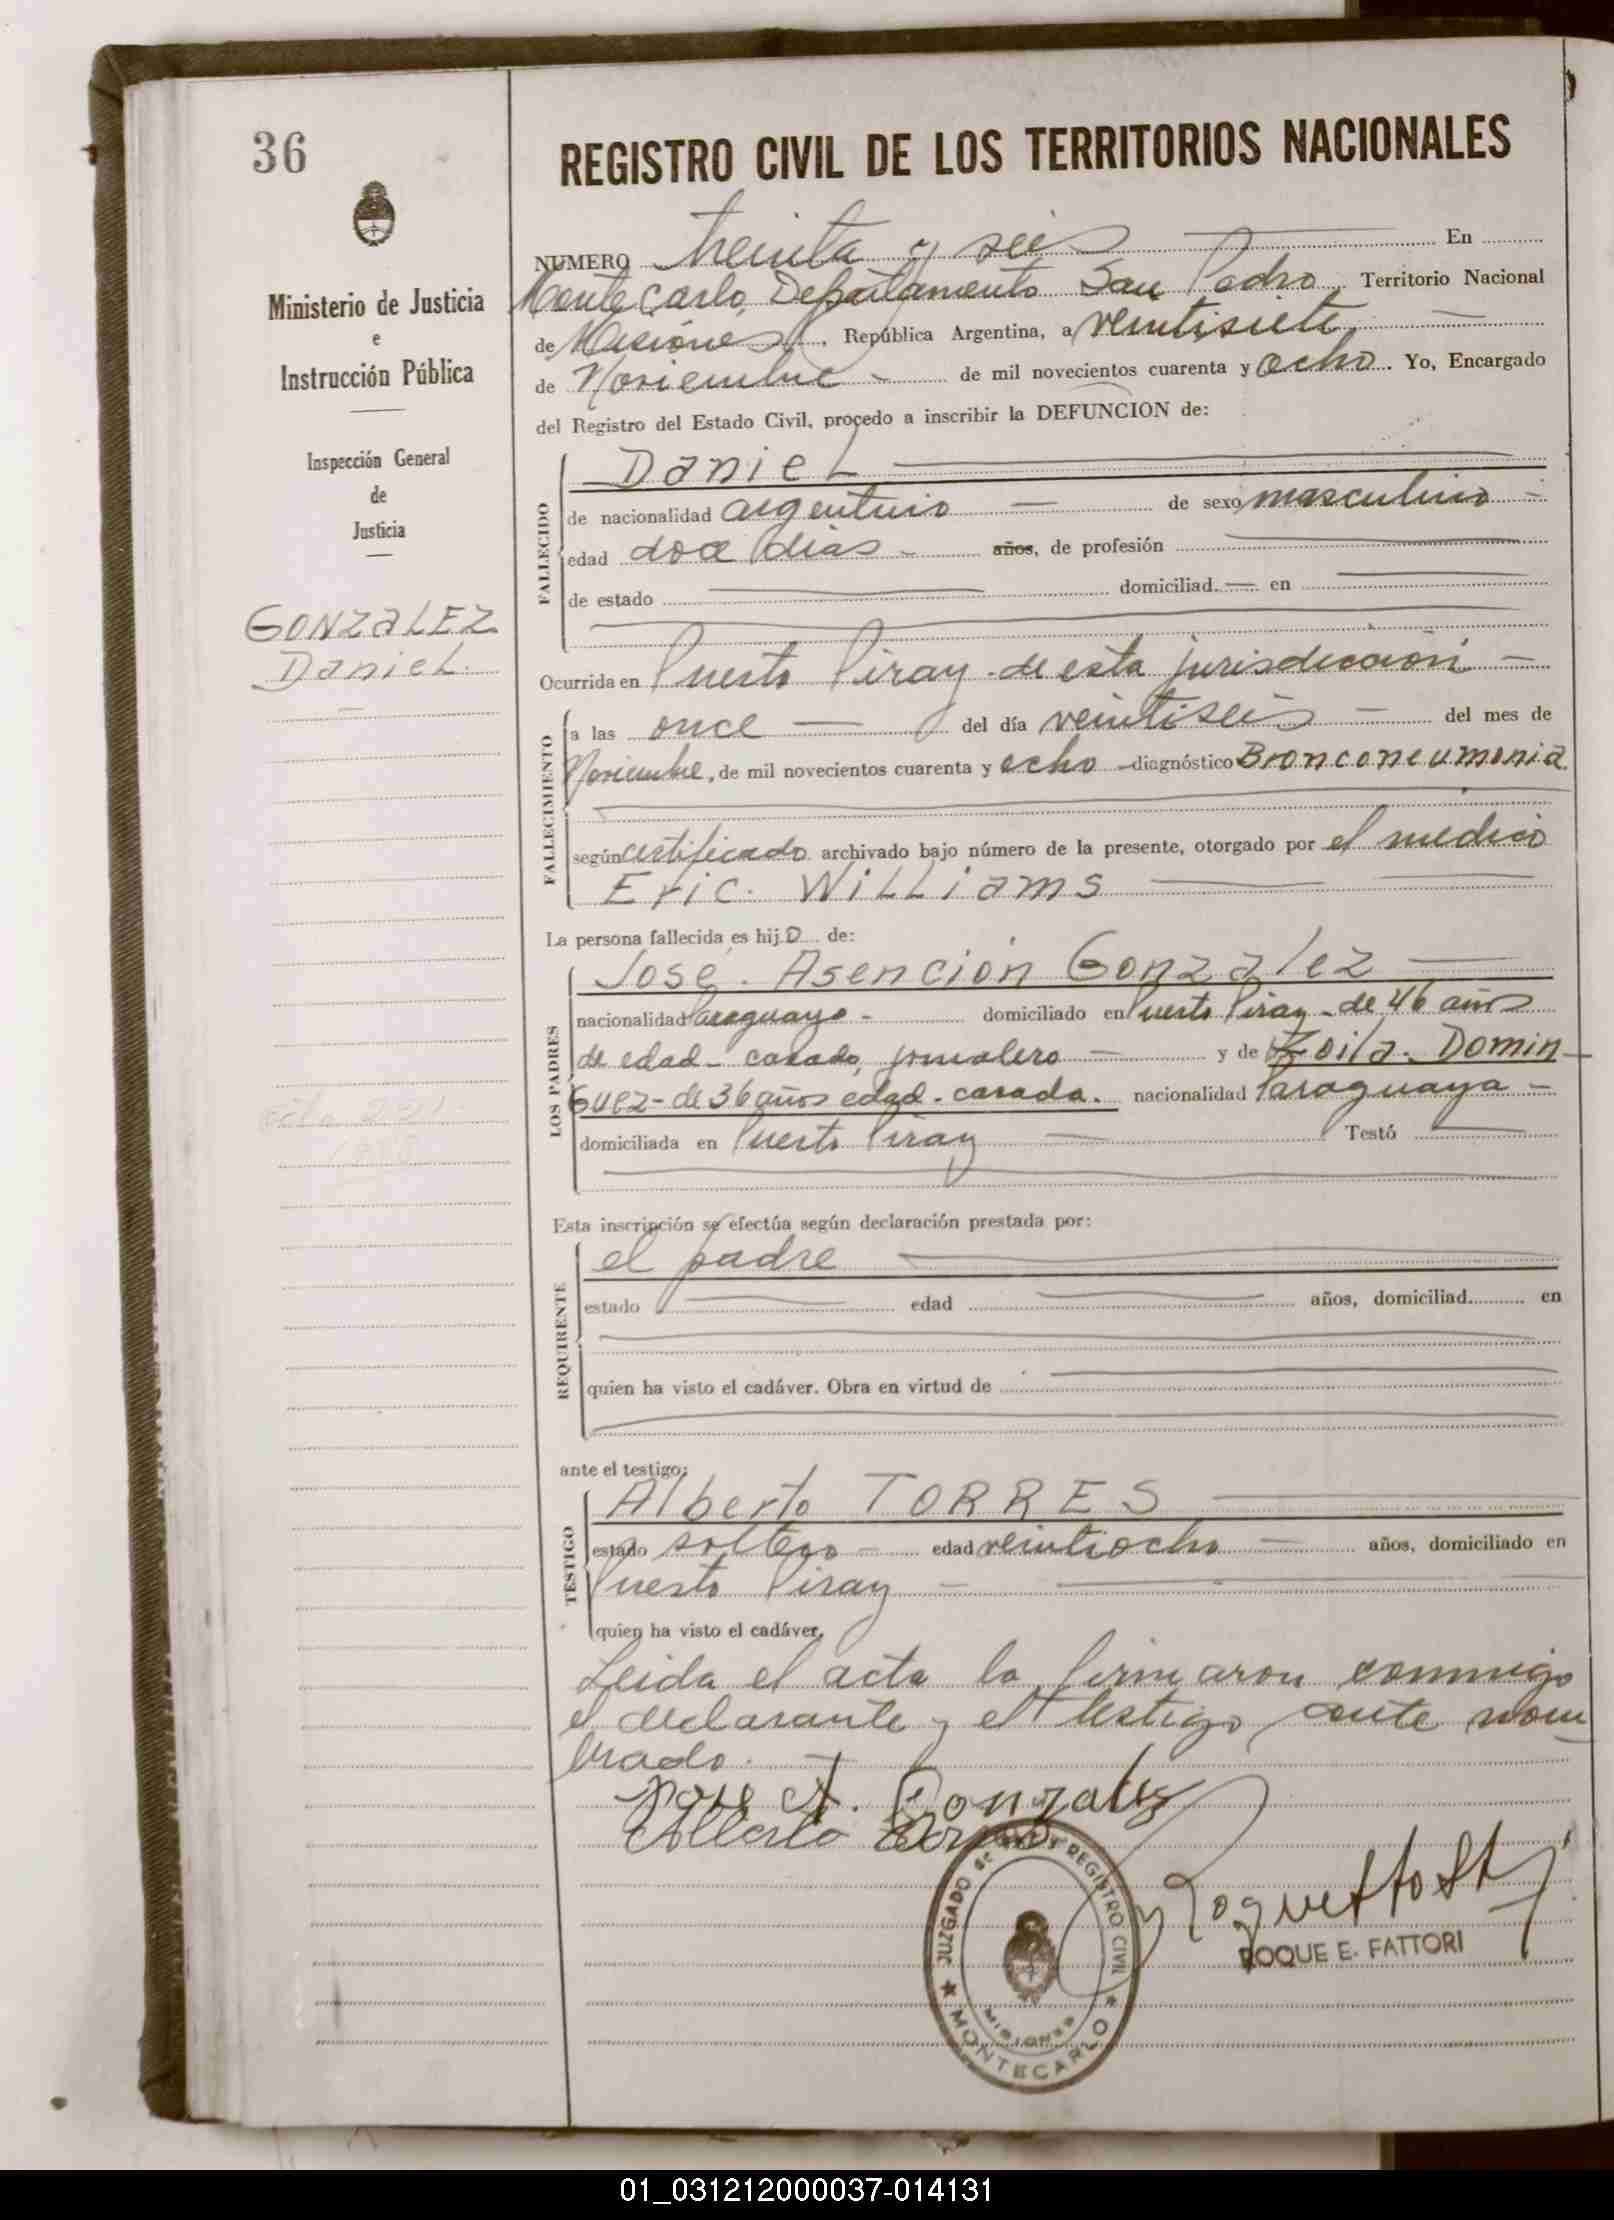 36
Ministerio de Justicia
e
Instrucción Pública
Inspección General
de
Justicia
GONZALEZ
Daniel
REGISTRO CIVIL DE LOS TERRITORIOS NACIONALES
NUMERO treinta y seis En
Montecarlo, Departamento San Pedro, Territorio Nacional
de Misiones, República Argentina, a veintisiete
de Noviembre de mil novecientos cuarenta y ocho. Yo, Encargado
del Registro del Estado Civil, procedo a inscribir la DEFUNCION de:
FALLECIDO
Daniel
de nacionalidad argentino de sexo masculino
edad doce dias años, de profesión
de estado domiciliad. en
Ocurrida en Puerto Piray - de esta jurisdicción
FALLECIMIENTO
a las once del día veintiseis del mes de
Noviembre, de mil novecientos cuarenta y ocho diagnóstico Bronconeumonia
según certificado archivado bajo número de la presente, otorgado por el medico
Eric. Williams
La persona fallecida es hijo de:
LOS PADRES
José. Asención Gonzalez
nacionalidad Paraguayo - domiciliado en Puerto Piray - de 46 años
de edad - casado, jornalero y de Zoila. Domin-
guez - de 36 años edad - casada. nacionalidad Paraguaya -
domiciliada en Puerto Piray Testó
Esta inscripción se efectúa según declaración prestada por:
REQUIRENTE
el padre
estado edad años, domiciliad en
quien ha visto el cadáver. Obra en virtud de
ante el testigo:
TESTIGO
Alberto TORRES
estado soltero - edad veintiocho años, domiciliado en
Puerto Piray
quien ha visto el cadáver.
Leida el acta la firmaron conmigo
el declarante y el testigo ante nom
brado.
Jose A. Gonzalez
Alberto Torres
JUZGADO DE PAZ Y REGISTRO CIVIL
MISIONES
MONTECARLO
ROQUE E. FATTORI
01_031212000037-014131